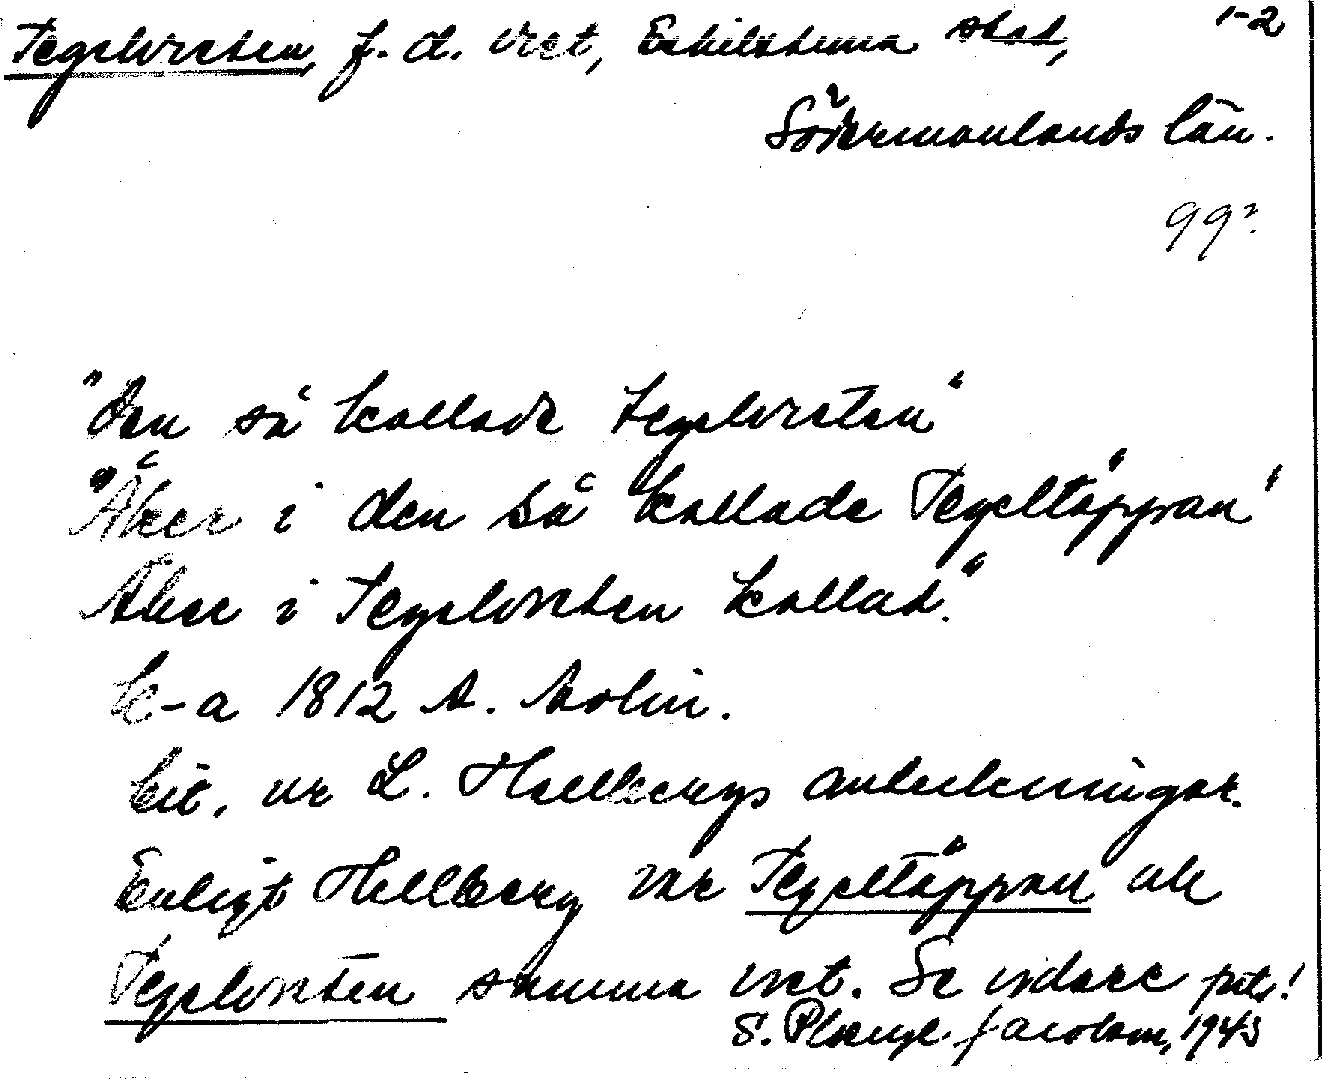 Tegelvreten, f. d. vret, Eskilstuna stad, 1-2
Södermanlands län.
99
"Den så kallade tegelvreten"
"Åker i den så kallade Tegeltäppan"
Åker i Tegelvreten kallad."
k-a 1812 A. Molin.
Cit. ur L. Hellbergs anteckningar.
Enligt Hellberg var Tegeltäppan och
Tegelvreten samma vret. Se vidare
S. Jacobson, 1945